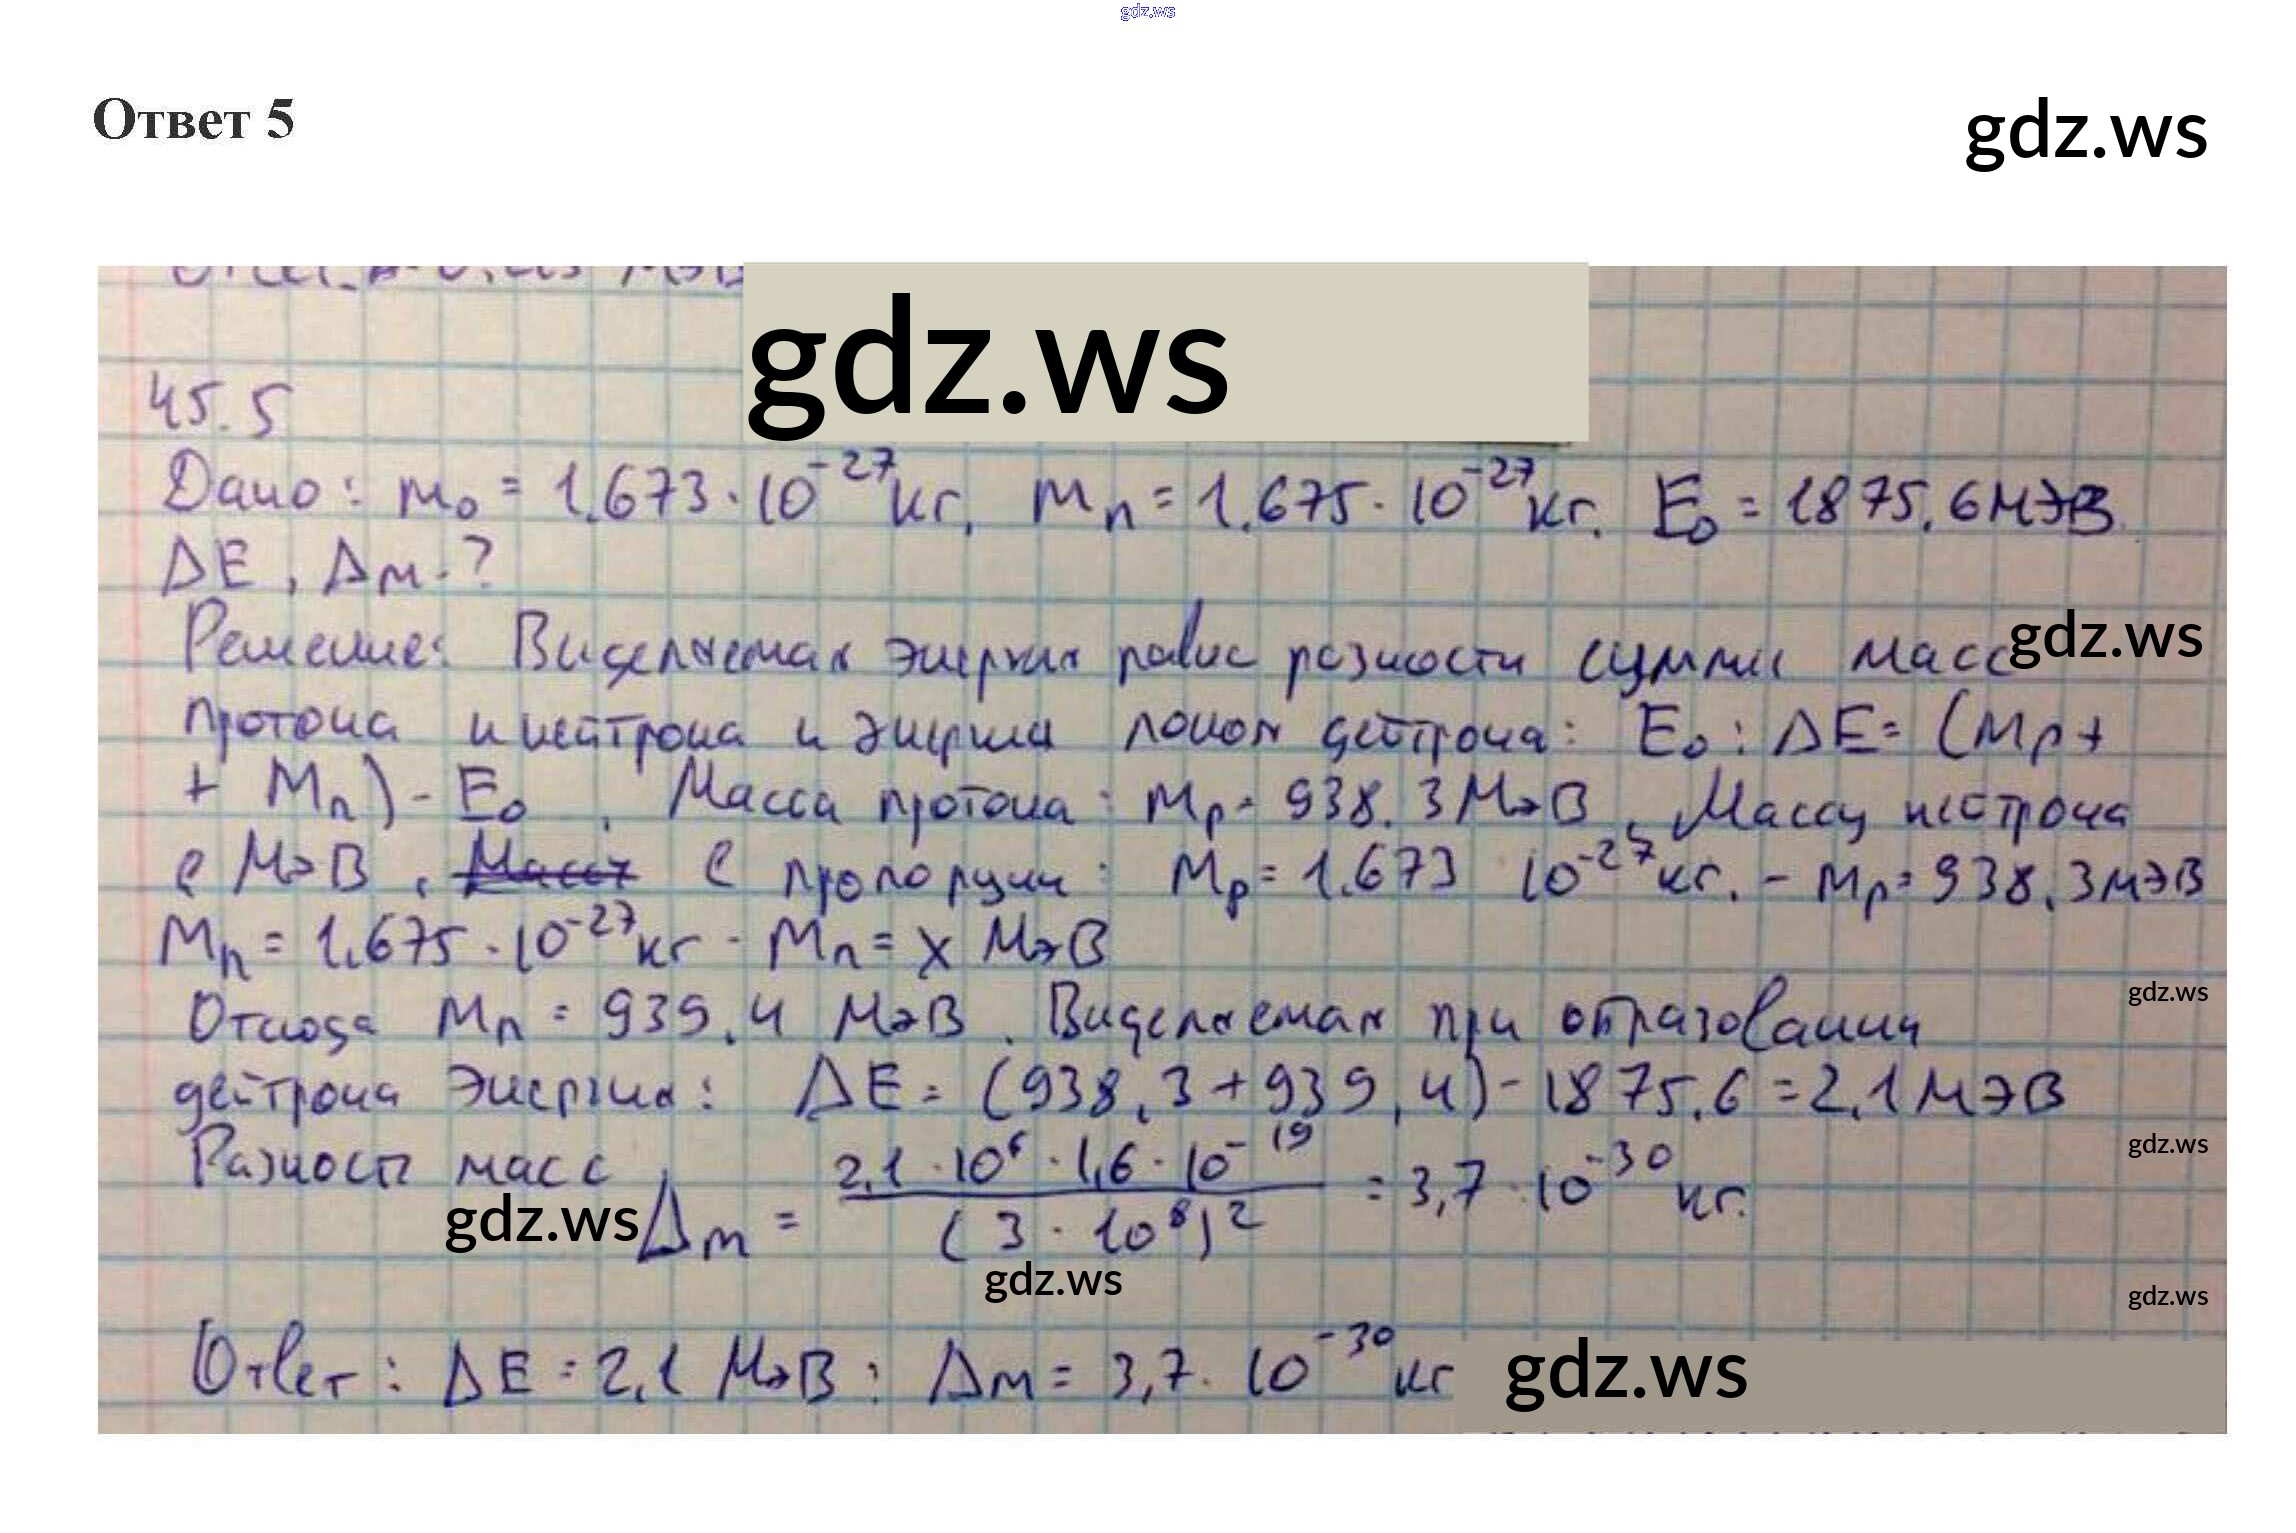 gdz.ws
Ответ 5
gdz.ws
gdz.ws
45.5
Дано: m₀ = 1.673 · 10⁻²⁷ кг, mₙ = 1.675 · 10⁻²⁷ кг. E₀ = 1875.6 МэВ.
ΔE, Δm - ?
Решение: Виделяемая энергия равна разности суммы масс
gdz.ws
протона и нейтрона и энергии покоя дейтрона: E₀: ΔE = (Mp +
+ Mn) - E₀. Масса протона: Mp = 938.3 МэВ. Массу нейтрона
с МэВ. С пропорции: Mp = 1.673 10⁻²⁷ кг. - Mp = 938.3 МэВ
Mn = 1.675 · 10⁻²⁷ кг - Mn = x МэВ
gdz.ws
Отсюда Mn = 939.4 МэВ. Виделяемая при образовании
дейтрона Энергия: ΔE = (938.3 + 939.4) - 1875.6 = 2.1 МэВ
gdz.ws
Разность масс Δm = 2.1 · 10⁶ · 1,6 · 10⁻¹⁹ / (3 · 10⁸)² = 3,7 · 10⁻³⁰ кг.
gdz.ws
gdz.ws
gdz.ws
Ответ: ΔE = 2,1 МэВ; Δm = 3,7 · 10⁻³⁰ кг
gdz.ws